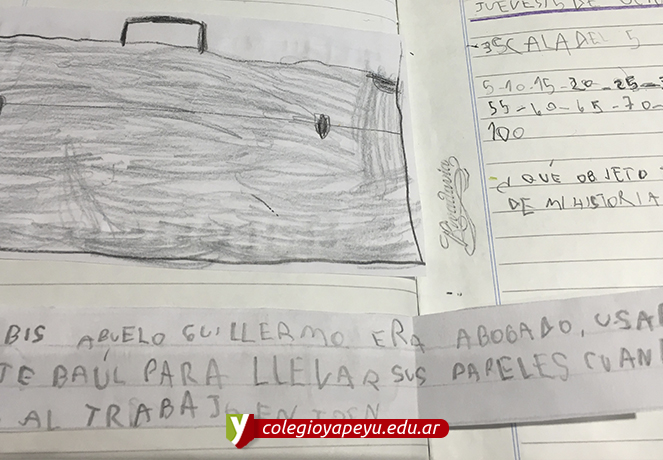 JUEVES 15 DE
ESCALA DEL 5
5-10-15-20-25-
55-60-65-70-
100
¿QUÉ OBJETO
DE MI HISTORIA
Rivadavia
BIS ABUELO GUILLERMO ERA ABOGADO, USA
TE BAÚL PARA LLEVAR SUS PAPELES CUAN
AL TRABAJO EN TREN
y colegioyapeyu.edu.ar